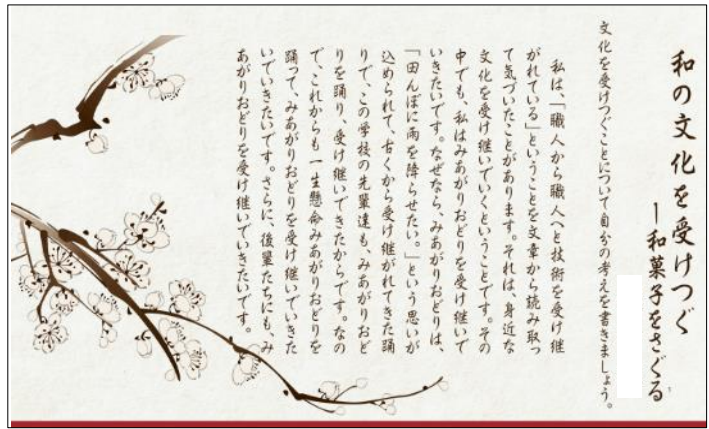 和の文化を受けつぐ
ー和菓子をさぐる
文化を受けつぐことについて自分の考えを書きましょう。
私は、「職人から職人へと技術を受け継
がれている」ということを文章から読み取っ
て気づいたことがあります。それは、身近な
文化を受け継いでいくということです。その
中でも、私はみあがりおどりを受け継いで
いきたいです。なぜなら、みあがりおどりは、
「田んぼに雨を降らせたい。」という思いが
込められて、古くから受け継がれてきた踊
りで、この学校の先輩達も、みあがりおど
りを踊り、受け継いできたからです。なの
で、これからも一生懸命みあがりおどりを
踊って、みあがりおどりを受け継いでいきた
いでいきたいです。さらに、後輩たちにも、み
あがりおどりを受け継いでいきたいです。